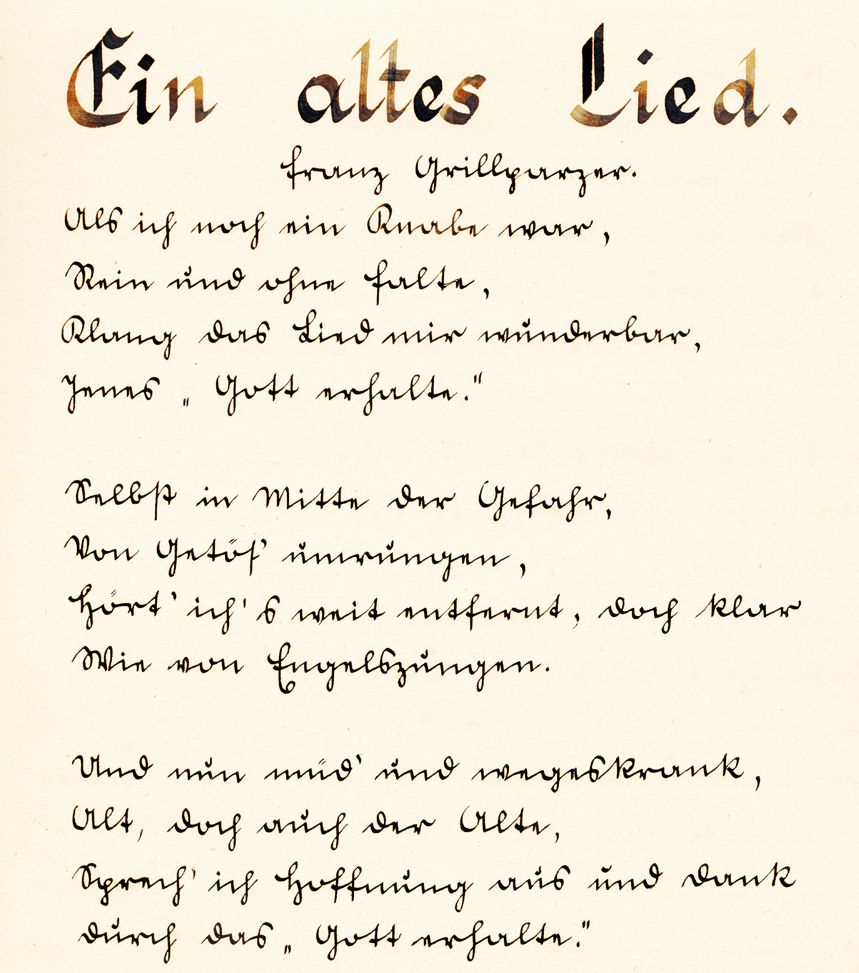 Ein altes Lied.
Franz Grillparzer.
Als ich noch ein Knabe war,
Rein und ohne Falte,
Klang das Lied mir wunderbar,
Jenes „Gott erhalte."
Selbst in Mitte der Gefahr,
Von Getös' umrungen,
Hört' ich's weit entfernt, doch klar
Wie von Engelszungen.
Und nun müd' und wegeskrank,
Alt, doch auch der Alte,
Sprech' ich Hoffnung aus und Dank
Durch das „Gott erhalte."